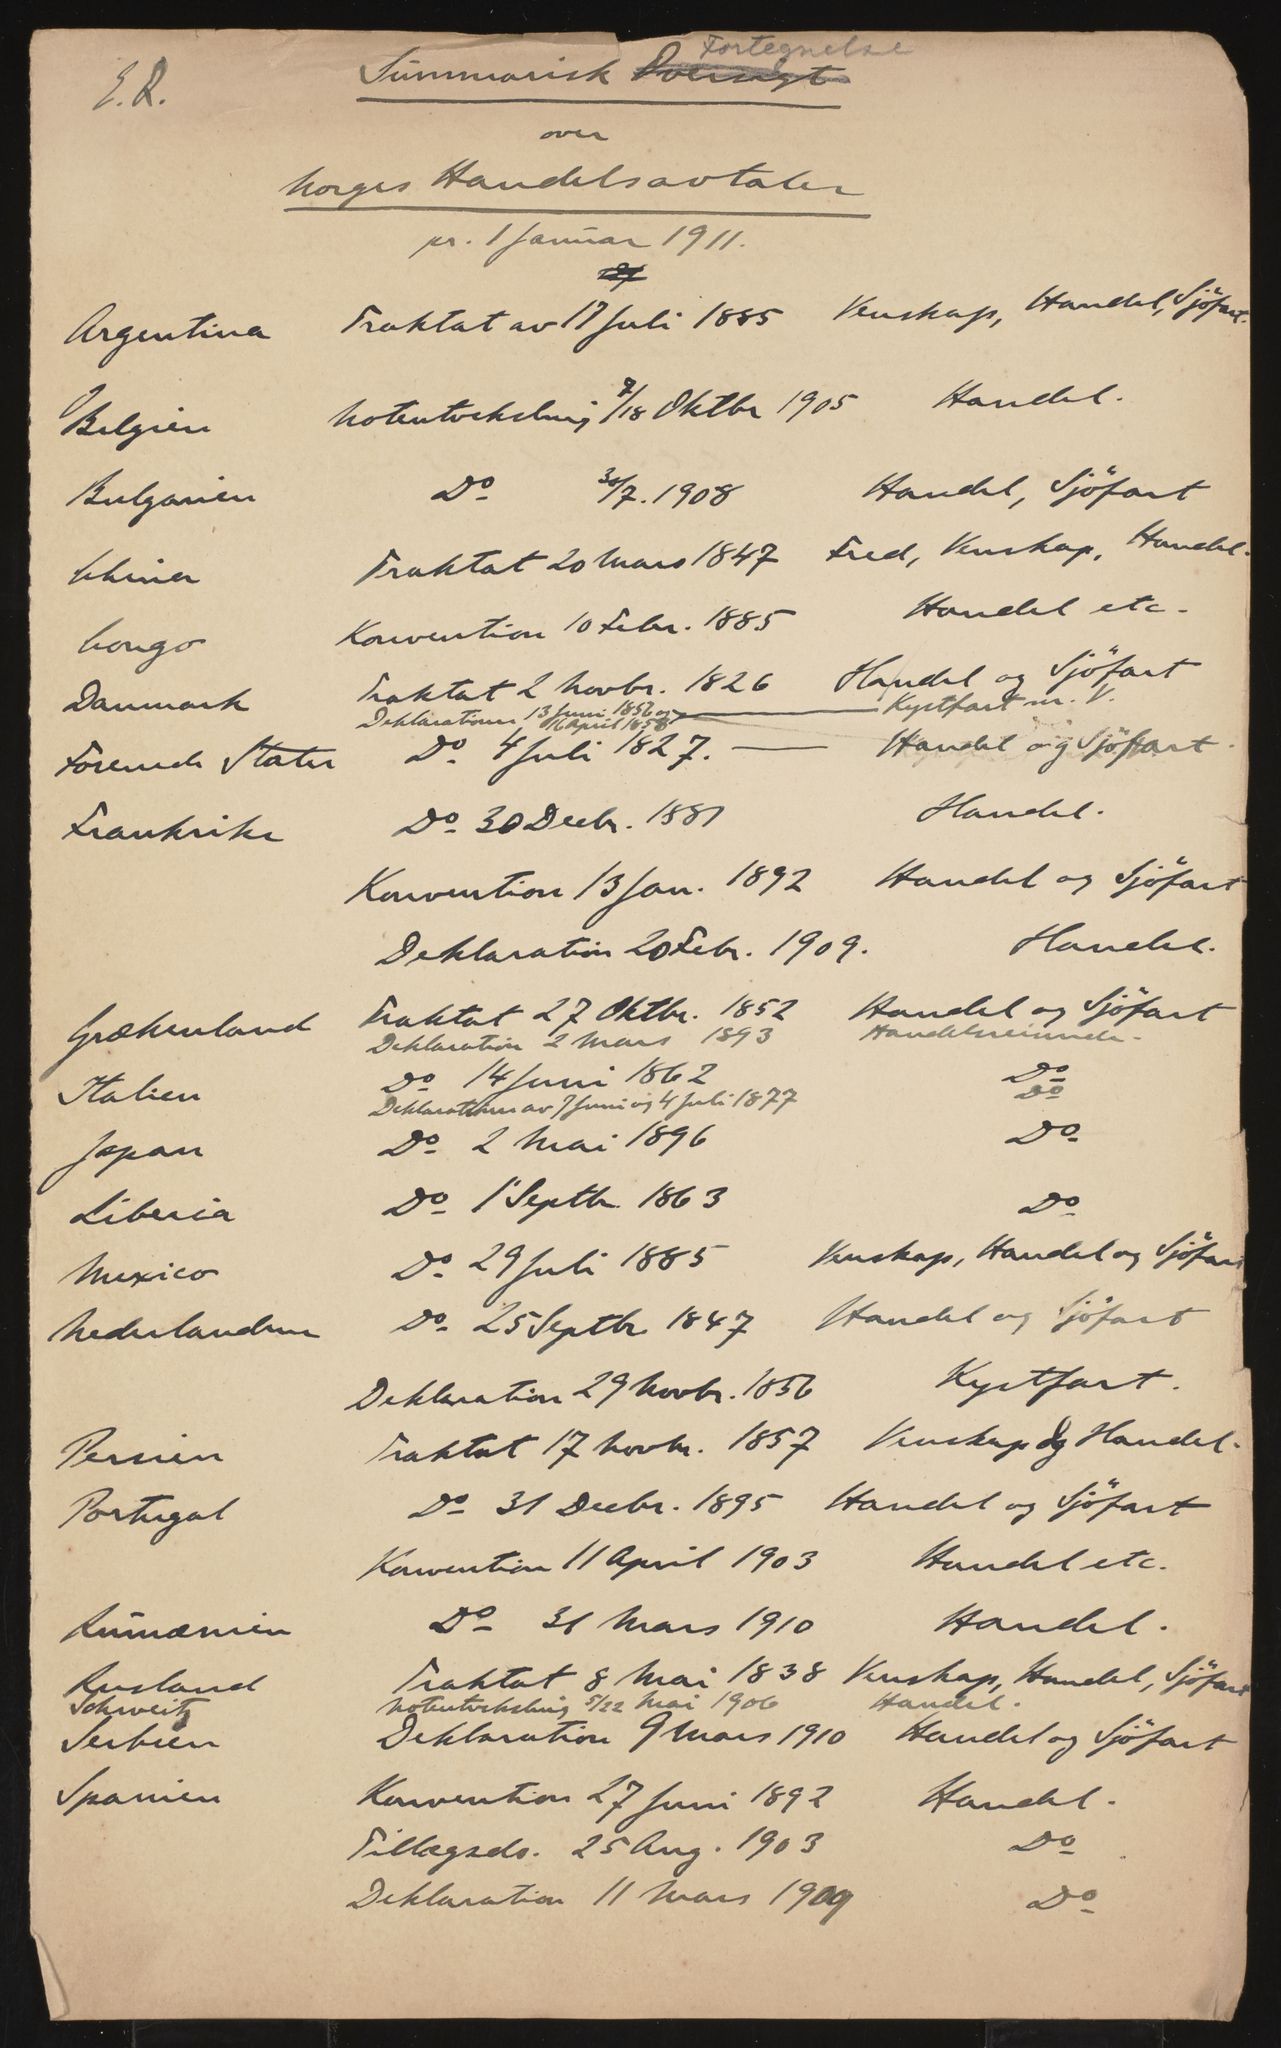 Fortegnelse
E.R.
Summarisk Oversigt
over
Norges Handelsavtaler
pr. 1 Januar 1911.
Argentina Traktat av 17 Juli 1885 Venskap, Handel, Sjöfart.
Belgien Noteutveksling 9/18 Oktbr 1905 Handel.
Bulgarien Do 30/7. 1908 Handel, Sjöfart
China Traktat 20 Mars 1847 Fred, Venskap, Handel.
Congo Konvention 10 Febr. 1885 Handel etc.
Danmark Traktat 2 Novbr. 1826 Handel og Sjöfart
Deklarationer 13 Juni 1856 og 16 April 1858 Kystfart m. V.
Forenede Stater Do 4 Juli 1827. Handel og Sjöfart.
Frankrike Do 30 Decbr. 1881 Handel.
Konvention 13 Jan. 1892 Handel og Sjöfart
Deklaration 20 Febr. 1909. Handel.
Grækenland Traktat 27 Oktbr. 1852 Handel og Sjöfart
Deklaration 2 Mars 1893 Handelsreisende.
Italien Do 14 Juni 1862 Do
Deklarationer av 7 Juni og 4 Juli 1877 Do
Japan Do 2 Mai 1896 Do
Liberia Do 1 Septbr 1863 Do
Mexico Do 29 Juli 1885 Venskap, Handel og Sjöfart
Nederlandene Do 25 Septbr 1847 Handel og Sjöfart
Deklaration 29 Novbr. 1856 Kystfart.
Persien Traktat 17 Novbr. 1857 Venskap og Handel.
Portugal Do 31 Decbr. 1895 Handel og Sjöfart
Konvention 11 April 1903 Handel etc.
Rumænien Do 31 Mars 1910 Handel.
Rusland Traktat 8 Mai 1838 Venskap, Handel, Sjöfart
Schweitz Noteutveksling 5/22 Mai 1906 Handel.
Serbien Deklaration 9 Mars 1910 Handel og Sjöfart
Spanien Konvention 27 Juni 1892 Handel.
Tillægsdo. 25 Aug. 1903 Do
Deklaration 11 Mars 1909 Do